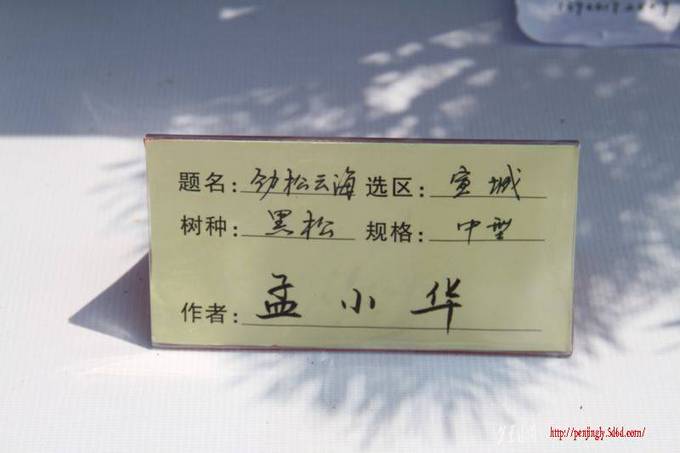 题名：劲松云海 选区：宣城
树种：黑松 规格：中型
作者：孟小华
http://penjingly.5d6d.com/